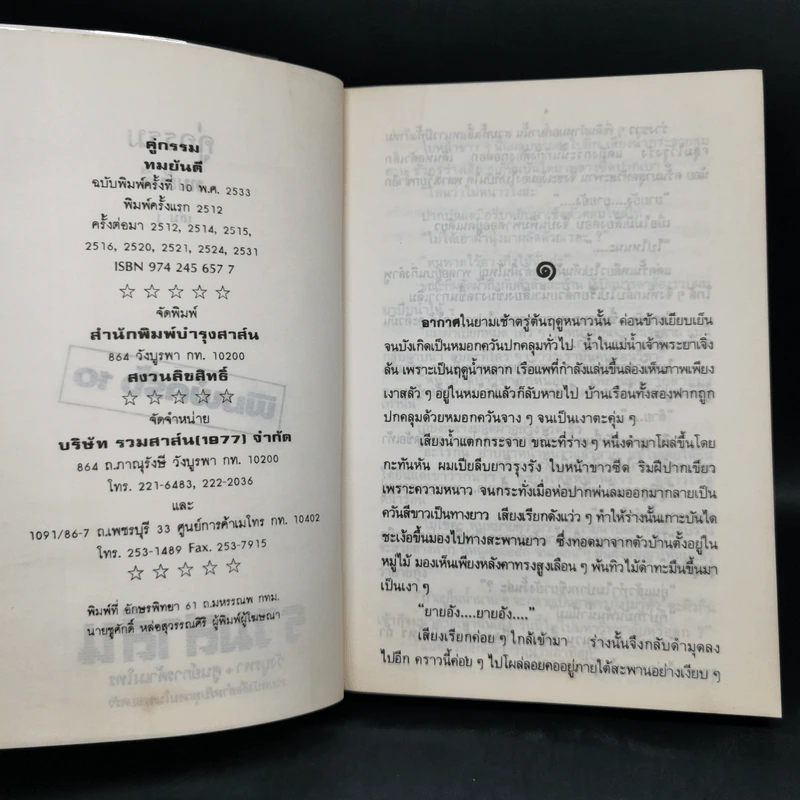 คู่กรรม
ทมยันตี
ฉบับพิมพ์ครั้งที่ 10 พ.ศ. 2533
พิมพ์ครั้งแรก 2512
ครั้งต่อมา 2512, 2514, 2515,
2516, 2520, 2521, 2524, 2531
ISBN 974 245 657 7
☆ ☆ ☆ ☆ ☆
จัดพิมพ์
สำนักพิมพ์บำรุงสาส์น
864 วังบูรพา กท. 10200
สงวนลิขสิทธิ์
☆ ☆ ☆ ☆ ☆
จัดจำหน่าย
บริษัท รวมสาส์น(1977) จำกัด
864 ถ.ภาณุรังษี วังบูรพา กท. 10200
โทร. 221-6483, 222-2036
และ
1091/86-7 ถ.เพชรบุรี 33 ศูนย์การค้าเมโทร กท. 10402
โทร. 253-1489 Fax. 253-7915
☆ ☆ ☆ ☆ ☆
พิมพ์ที่ อักษรพิทยา 61 ถ.มหรรณพ กทม.
นายชูศักดิ์ หล่อสุวรรณศิริ ผู้พิมพ์ผู้โฆษณา
๑
อากาศในยามเช้าตรู่ต้นฤดูหนาวนั้น ค่อนข้างเยียบเย็น
จนบังเกิดเป็นหมอกควันปกคลุมทั่วไป น้ำในแม่น้ำเจ้าพระยาเจิ่ง
ล้น เพราะเป็นฤดูน้ำหลาก เรือแพที่กำลังแล่นขึ้นล่องเห็นภาพเพียง
เงาสลัว ๆ อยู่ในหมอกแล้วก็ลับหายไป บ้านเรือนทั้งสองฟากถูก
ปกคลุมด้วยหมอกควันจาง ๆ จนเป็นเงาตะคุ่ม ๆ
เสียงน้ำแตกกระจาย ขณะที่ร่าง ๆ หนึ่งดำมาโผล่ขึ้นโดย
กะทันหัน ผมเปียลีบยาวรุงรัง ใบหน้าขาวซีด ริมฝีปากเขียว
เพราะความหนาว จนกระทั่งเมื่อห่อปากพ่นลมออกมากลายเป็น
ควันสีขาวเป็นทางยาว เสียงเรียกดังแว่ว ๆ ทำให้ร่างนั้นเกาะบันได
ชะเง้อขึ้นมองไปทางสะพานยาว ซึ่งทอดมาจากตัวบ้านตั้งอยู่ใน
หมู่ไม้ มองเห็นเพียงหลังคาทรงสูงเลือน ๆ พ้นทิวไม้ดำทะมึนขึ้นมา
เป็นเงา ๆ
“ยายอัง....ยายอัง....”
เสียงเรียกค่อย ๆ ใกล้เข้ามา ร่างนั้นจึงกลับดำมุดลง
ไปอีก คราวนี้ค่อย ๆ ไปโผล่ลอยคออยู่ภายใต้สะพานอย่างเงียบ ๆ